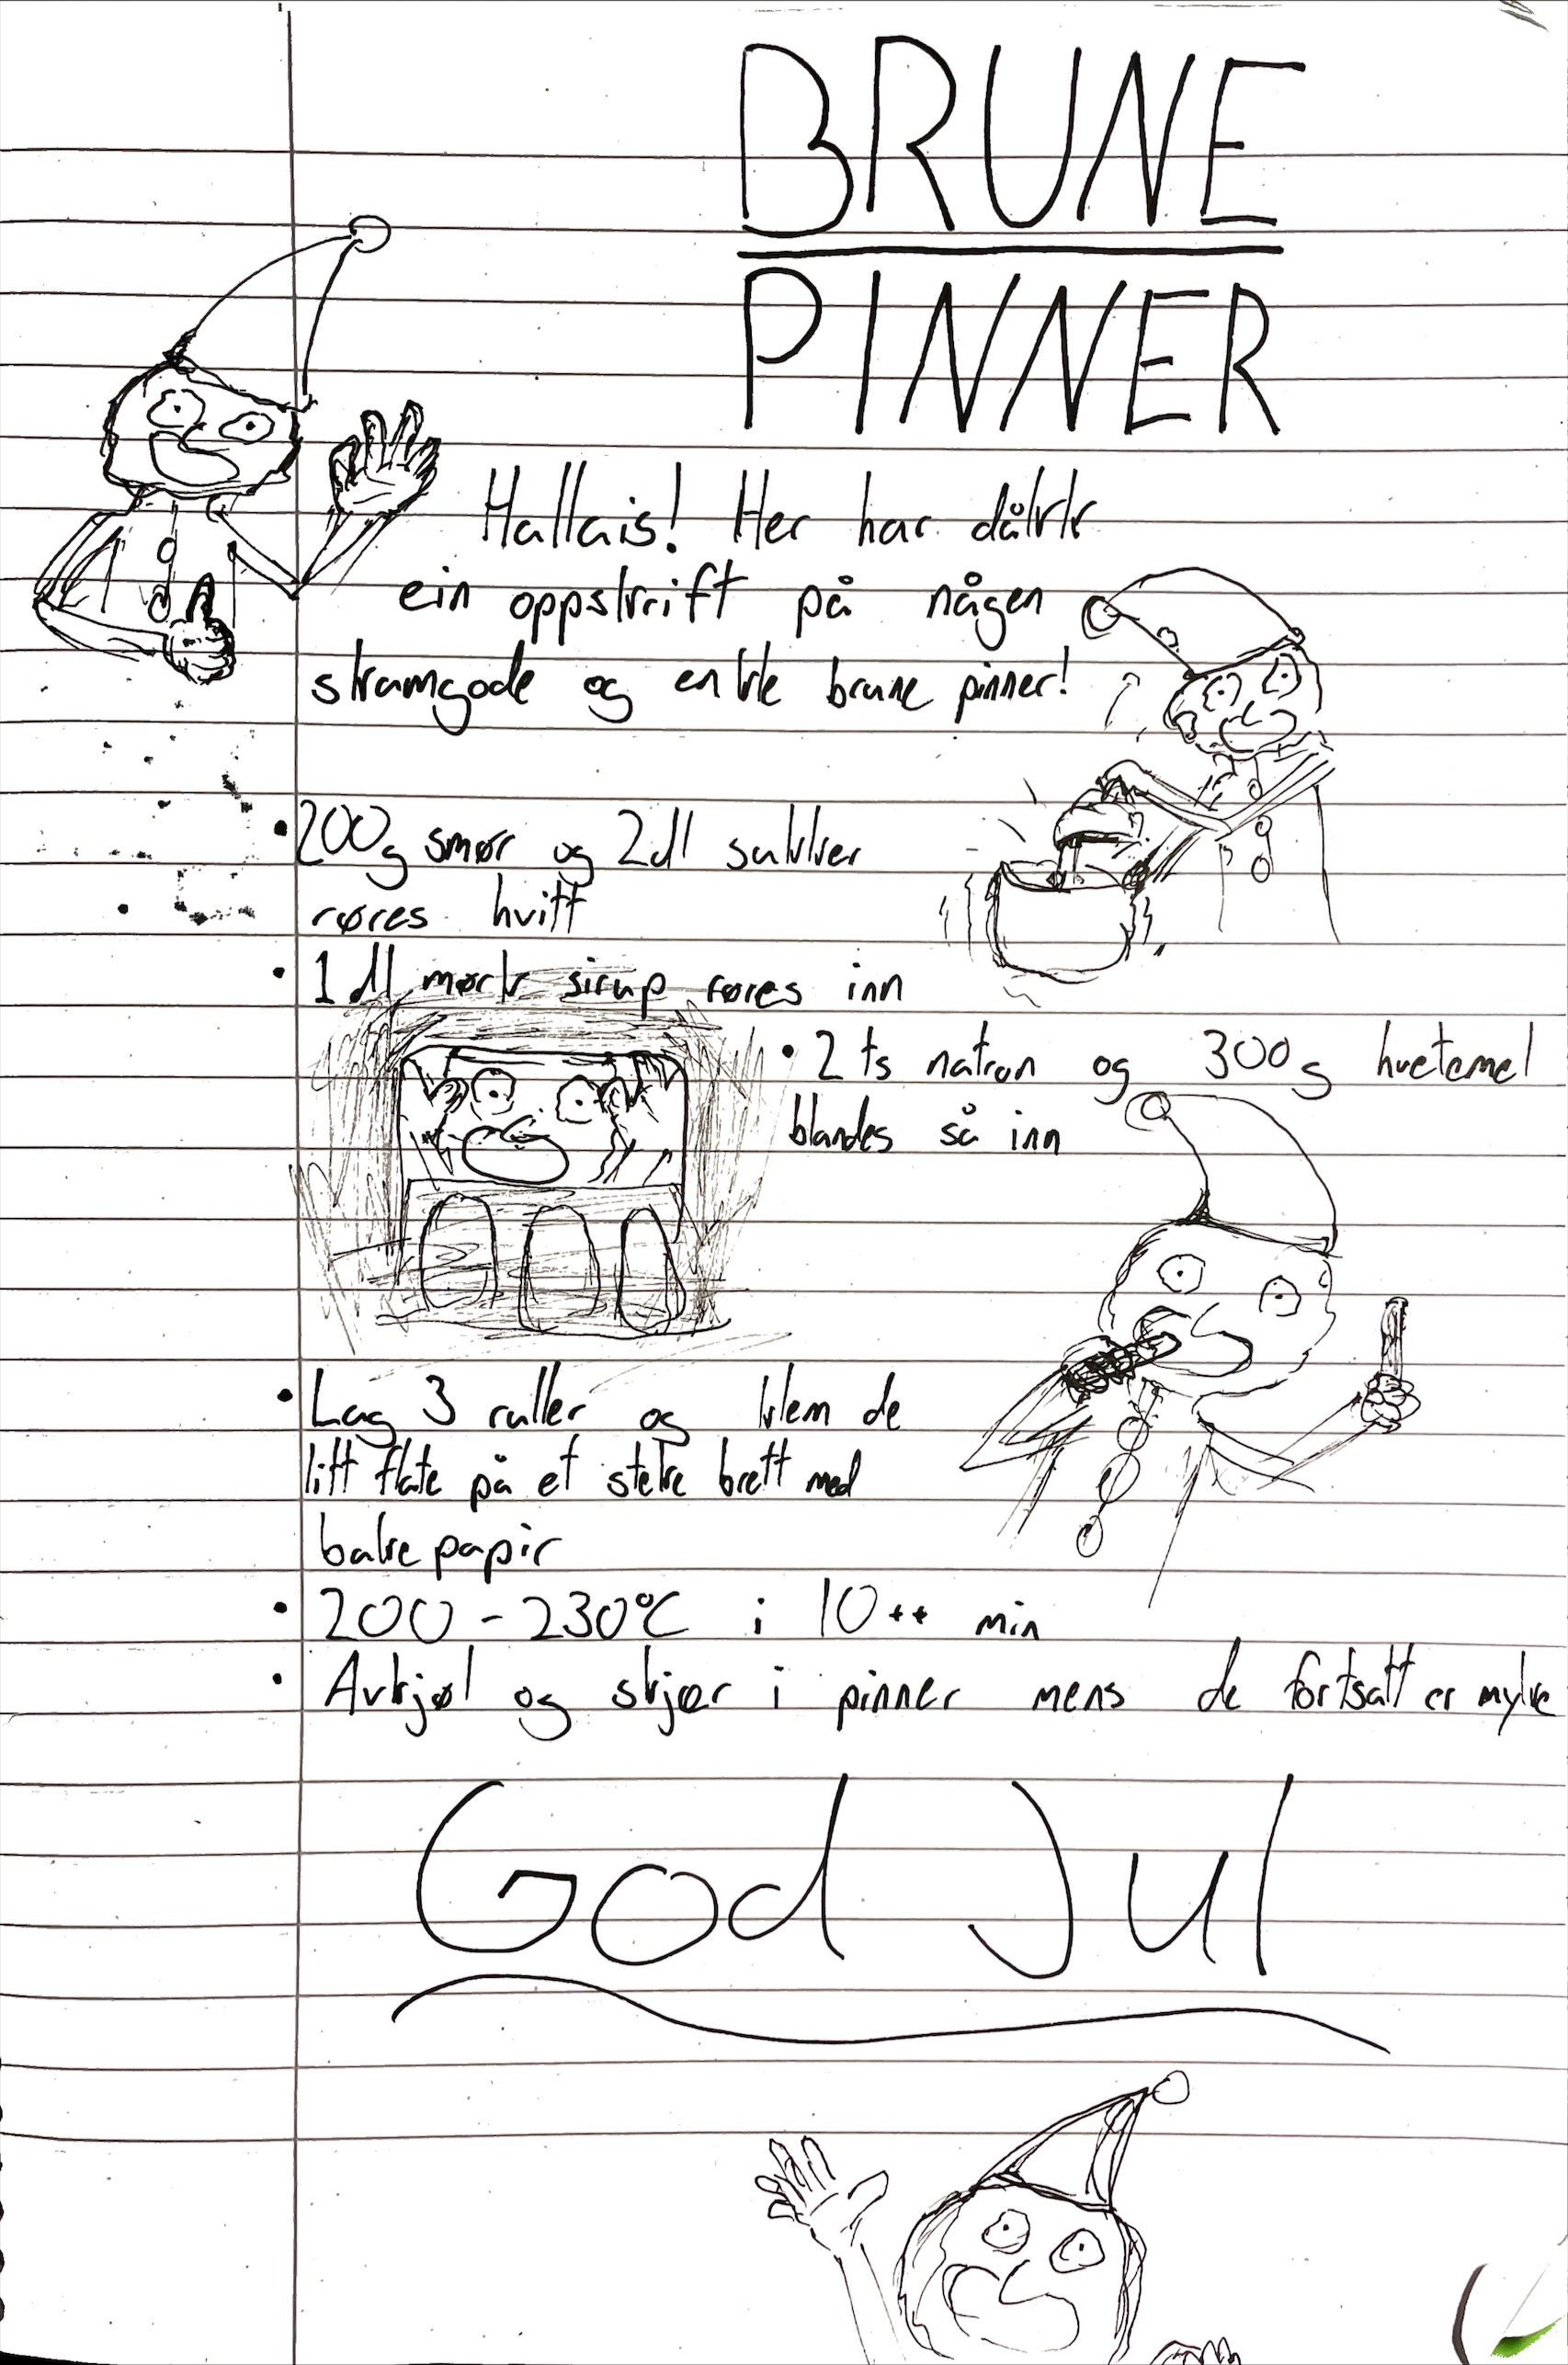 BRUNE
PINNER
Hallais! Her har dåkk
ein oppskrift på någen
kramgode og enkle brune pinner!
• 200g smør og 2dl sukker
røres hvitt
• 1 dl mørk sirup røres inn
• 2 ts natron og 300g hvetemel
blandes så inn
• Lag 3 ruller og klem de
litt flate på et steke brett med
bakepapir
• 200-230°C i 10++ min
• Avkjøl og skjær i pinner mens de fortsatt er myke
God Jul